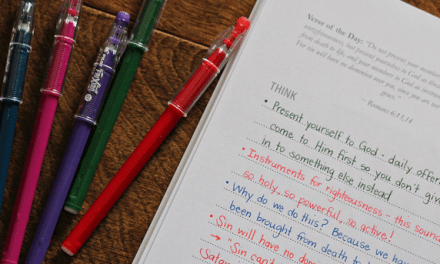 Verse of the Day: "Do not present your
unrighteousness, but present yourselves to God as
from death to life, and your members to God as instruments
For sin will have no dominion over you, since you are not
under
- Romans 6:13,14
THINK
• Present yourself to God - daily offer
come to Him first so you don't give
in to something else instead
• Instruments for righteousness - this sounds
so holy..so powerful, so active!
• Why do we do this? Because we have
been brought from death to
• Sin will have no
→ "Sin can't
(Satan